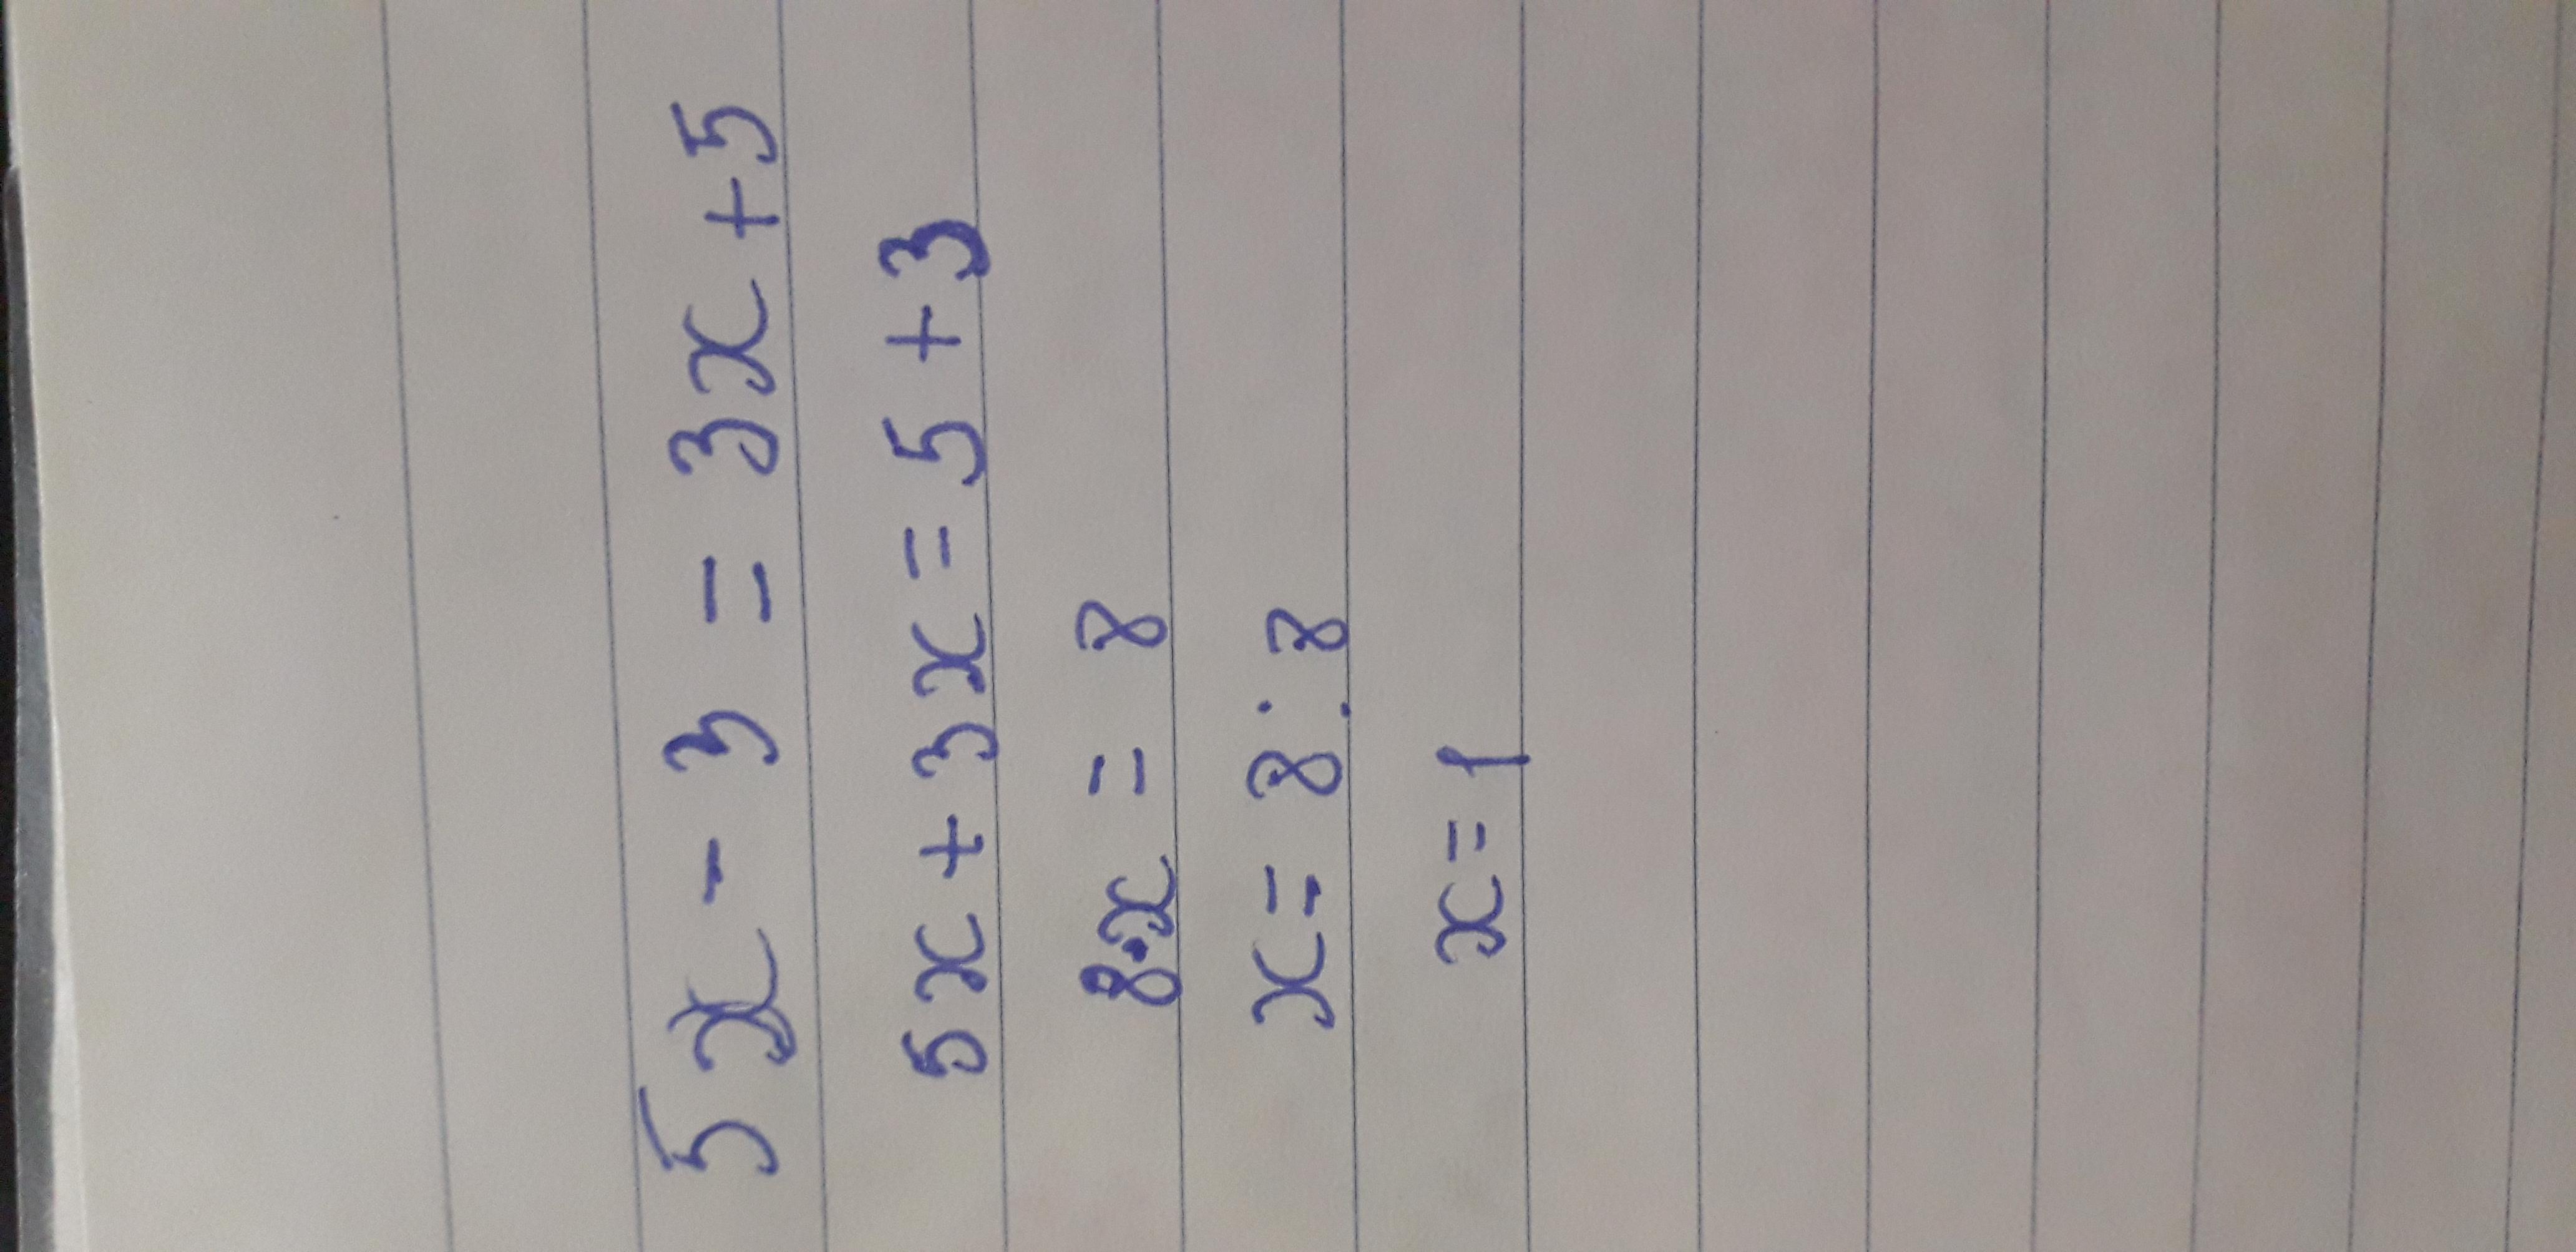 5x - 3 = 3x + 5
5x + 3x = 5 + 3
8·x = 8
x = 8 : 8
x = 1